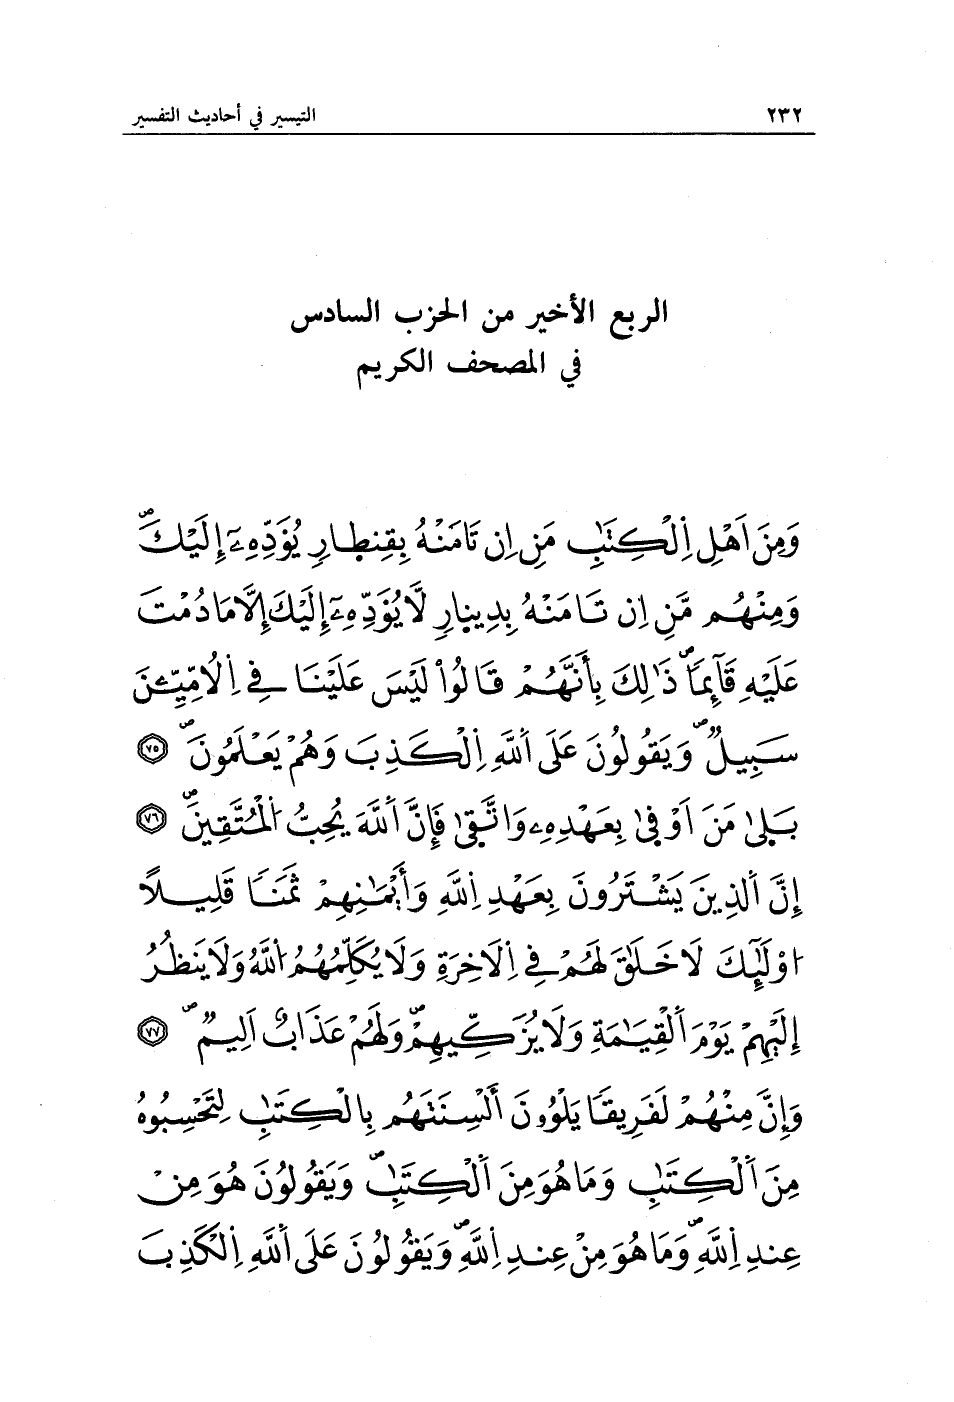 ٢٣٢ التيسير في أحاديث التفسير
الربع الأخير من الحزب السادس
في المصحف الكريم
وَمِنَ اَهْلِ اِ۬لْكِتَٰبِ مَنِ اِن تَامَنْهُ بِقِنطارٖ يُؤَدِّهِۦٓ إِلَيْكَۖ
وَمِنْهُم مَّنِ اِن تَامَنْهُ بِدِينارٖ لَّا يُؤَدِّهِۦٓ إِلَيْكَ إِلَّا مَا دُمْتَ
عَلَيْهِ قَآئِماٗۖ ذَٰلِكَ بِأَنَّهُمْ قَالُواْ لَيْسَ عَلَيْنَا فِے اِ۬لُامِّيِّـۧنَ
سَبِيلٞۖ وَيَقُولُونَ عَلَى اَ۬للَّهِ اِ۬لْكَذِبَ وَهُمْ يَعْلَمُونَۖ ٧٥
بَلىٰ مَنَ اَوْفىٰ بِعَهْدِهِۦ وَاتَّقىٰ فَإِنَّ اَ۬للَّهَ يُحِبُّ اُ۬لْمُتَّقِينَۖ ٧٦
إِنَّ اَ۬لذِينَ يَشْتَرُونَ بِعَهْدِ اِ۬للَّهِ وَأَيْمَٰنِهِمْ ثَمَناٗ قَلِيلًا
ا۟وْلَٰٓئِكَ لَا خَلَٰقَ لَهُمْ فِے اِ۬لَاخِرَةِ وَلَا يُكَلِّمُهُمُ اُ۬للَّهُ وَلَا يَنظُرُ
إِلَيْهِمْ يَوْمَ اَ۬لْقِيَٰمَةِ وَلَا يُزَكِّيهِمْۖ وَلَهُمْ عَذَابٌ اَلِيمٞۖ ٧٧
وَإِنَّ مِنْهُمْ لَفَرِيقاٗ يَلْوُۥنَ أَلْسِنَتَهُم بِالْكِتَٰبِ لِتَحْسِبُوهُ
مِنَ اَ۬لْكِتَٰبِ وَمَا هُوَ مِنَ اَ۬لْكِتَٰبِۖ وَيَقُولُونَ هُوَ مِنْ
عِندِ اِ۬للَّهِۖ وَمَا هُوَ مِنْ عِندِ اِ۬للَّهِۖ وَيَقُولُونَ عَلَى اَ۬للَّهِ اِ۬لْكَذِبَ